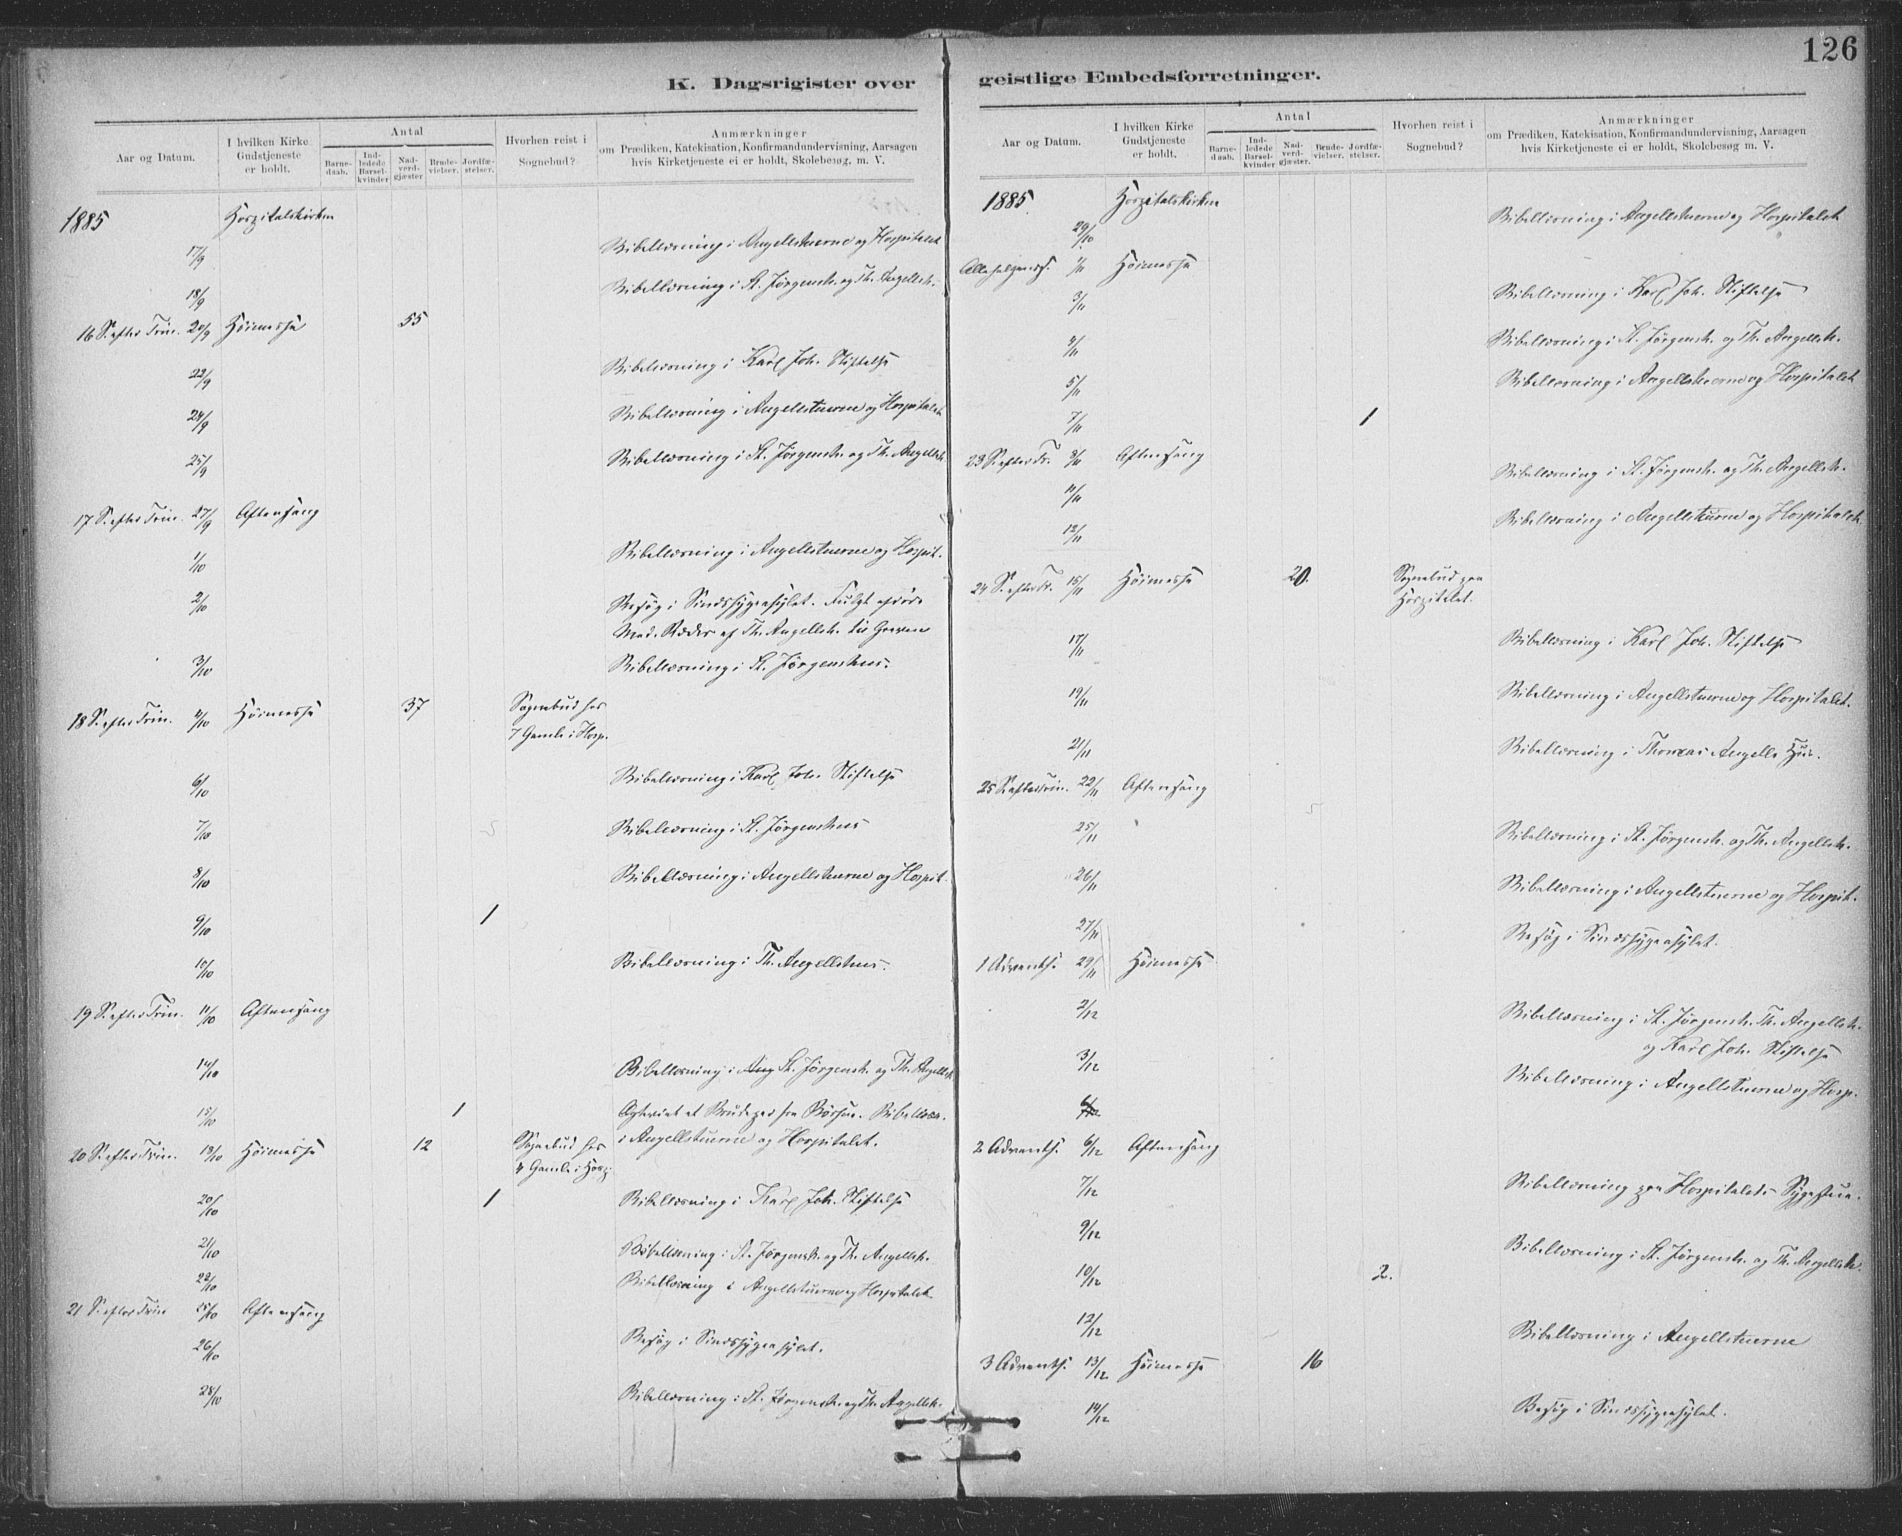 126
K. Dagsrigister over geistlige Embedsforretninger.
Aar og Datum.
I hvilken Kirke Gudstjeneste er holdt.
Antal
Barne-daab.
Ind-ledede Barsel-kvinder
Nad-verd-gjæster
Brude-vielser.
Jordfæ-stelser.
Hvorhen reist i Sognebud?
Anmærkninger
om Prædiken, Katekisation, Konfirmandundervisning, Aarsagen
hvis Kirketjeneste ei er holdt, Skolebesøg, m. V.
1885 Hospitalskirken
17/9 Bibellæsning i Angellstuerne og Hospitalet
18/9 Bibellæsning i St. Jørgensh. og Th. Angellsh.
16 S. efter Trin. 20/9 Høimesse 55
22/9 Bibellæsning i Karl Joh. Stiftelse
24/9 Bibellæsning i Angellstuerne og Hospitalet
25/9 Bibellæsning i St. Jørgensh. og Th. Angellsh.
17 S. efter Trin. 27/9 Aftensang
1/10 Bibellæsning i Angellstuerne og Hospit.
2/10 Besøg i Sindssygeasylet. Fulgt
Mad. af Th. Angellsh. til Graven
3/10 Bibellæsning i St. Jørgenshus.
18 S. efter Trin. 4/10 Høimesse 37 Sognebud hos
7 Gamle i Hosp.
6/10 Bibellæsning i Karl Joh. Stiftelse
7/10 Bibellæsning i St. Jørgenshus
8/10 Bibellæsning i Angellstuerne og Hospit.
9/10 1
10/10 Bibellæsning i Th. Angellshus.
19 S. efter Trin. 11/10 Aftensang
14/10 Bibellæsning i Ang St. Jørgensh. og Th. Angellsh.
15/10 1 et Brudepar fra Børsen. Bibellæsn.
i Angellstuerne og Hospitalet.
20 S. efter Trin. 18/10 Høimesse 12 Sognebud hos
4 Gamle i Hosp.
20/10 1 Bibellæsning i Karl Joh. Stiftelse
21/10 Bibellæsning i St. Jørgensh. og Th. Angellsh.
22/10 Bibellæsning i Angellstuerne og Hospitalet.
21 S. efter Trin 25/10 Aftensang
26/10 Besøg i Sindssygeasylet.
28/10 Bibellæsning i St. Jørgensh. og Th. Angellsh.
Aar og Datum.
I hvilken Kirke Gudstjeneste er holdt.
Antal
Barne-daab.
Ind-ledede Barsel-kvinder
Nad-verd-gjæster.
Brude-vielser.
Jordfæ-stelser.
Hvorhen reist i Sognebud?
Anmærkninger
om Prædiken, Katekisation, Konfirmandundervisning, Aarsagen
hvis Kirketjeneste ei er holdt, Skolebesøg m. V.
1885 Hospitalskirken
29/10 Bibellæsning i Angellstuerne og Hospitalet
Allehelgensf. 1/11 Høimesse
3/11 Bibellæsning i Karl Joh. Stiftelse
4/11 Bibellæsning i St. Jørgensh. og Th. Angellsh.
5/11 Bibellæsning i Angellstuerne og Hospitalet
7/11 1
23 S. efter Tr. 8/11 Aftensang
11/11 Bibellæsning i St. Jørgensh. og Th. Angellsh.
12/11 Bibellæsning i Angellstuerne og Hospitalet.
24 S. efter Tr. 15/11 Høimesse 20. Sognebud paa
Hospitalet.
17/11 Bibellæsning i Karl Joh. Stiftelse
19/11 Bibellæsning i Angellstuerne og Hospitalet.
21/11 Bibellæsning i Thomas Angells Hus.
25 S. efter Trin. 22/11 Aftensang
25/11 Bibellæsning i St. Jørgensh. og Th. Angellsh.
26/11 Bibellæsning i Angellstuerne og Hospit.
27/11 Besøg i Sindssygeasylet.
1 Adventss. 29/11 Høimesse
2/12 Bibellæsning i St. Jørgensh. Th. Angellsh.
og Karl Joh. Stiftelse
3/12 Bibellæsning i Angellstuerne og Hosp.
6/12
2 Adventss. 6/12 Aftensang
7/12 Bibellæsning paa Hospitalets Sygestue.
9/12 Bibellæsning i St. Jørgensh. og Th. Angellsh.
10/12 2.
12/12 Bibellæsning i Angellstuerne
3 Adventss. 13/12 Høimesse 16
14/12 Besøg i Sindssygeasylet.